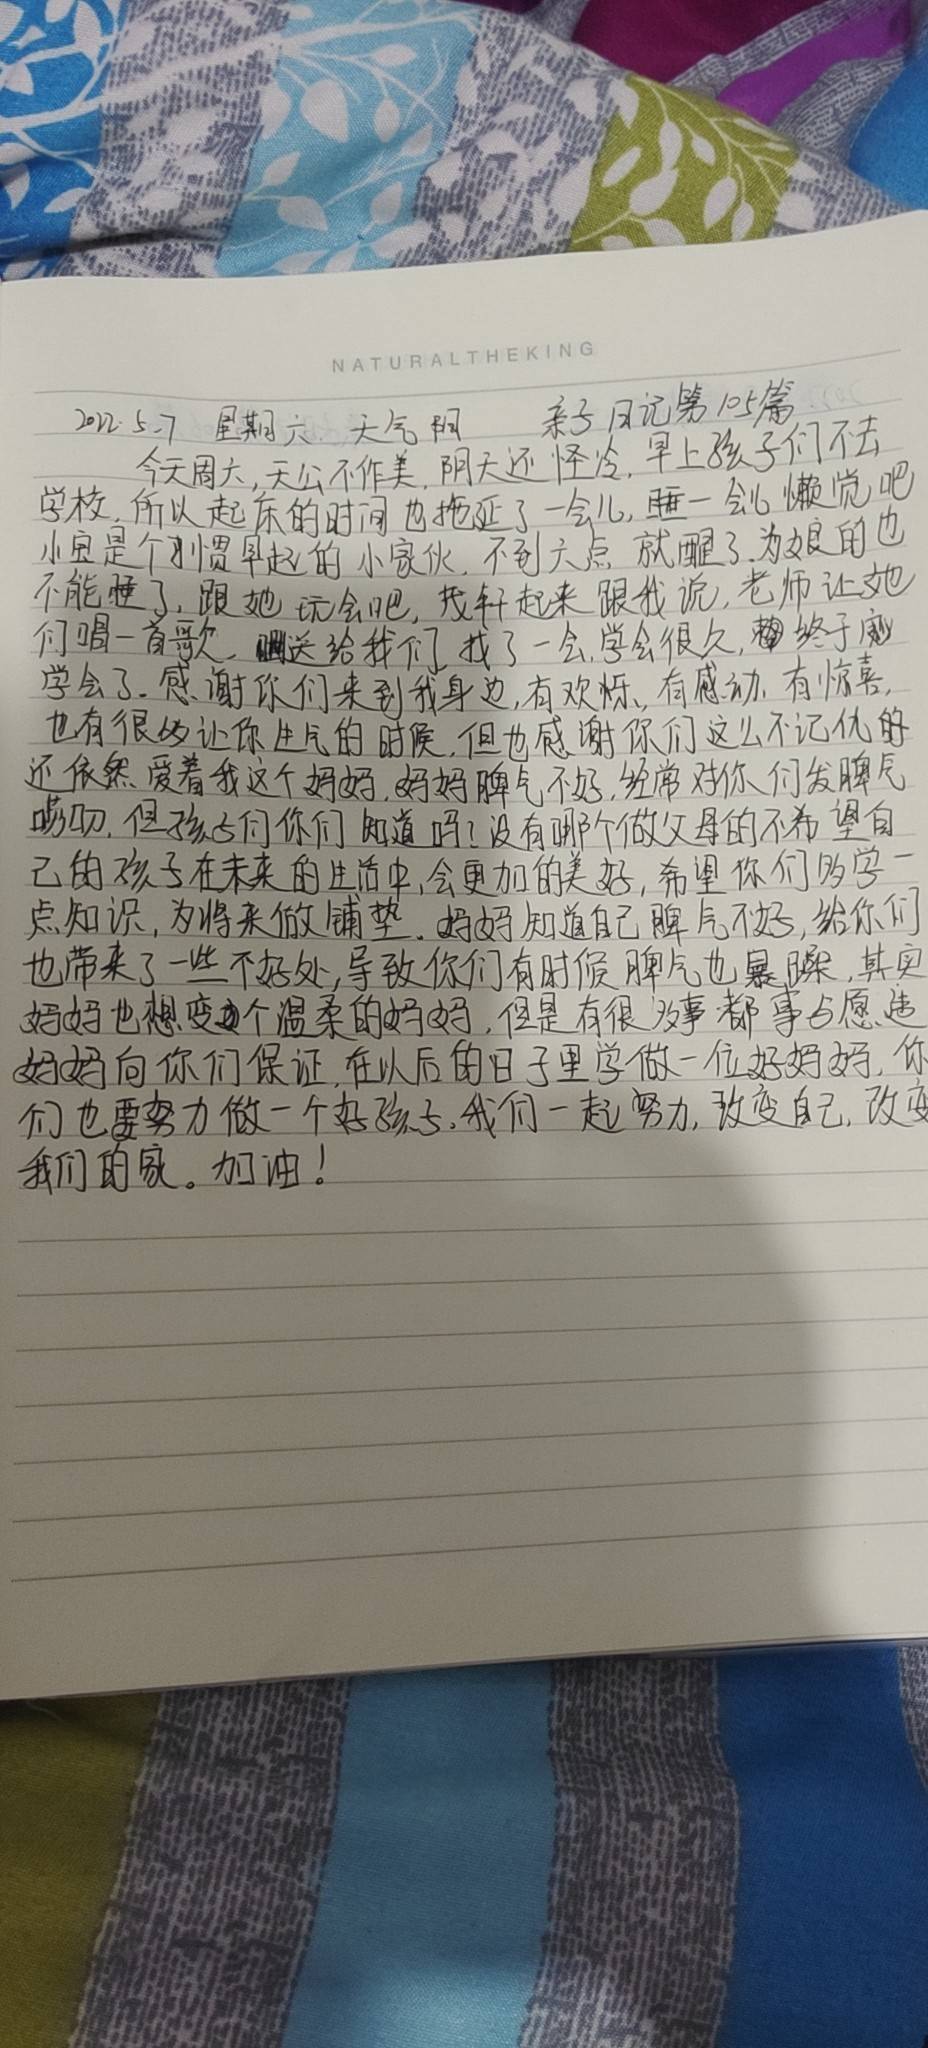 NATURALTHEKING
2022.5.7 星期六 天气阴 亲子日记第105篇
今天周六,天公不作美,阴天还怪冷,早上孩子们不去
学校,所以起床的时间也拖延了一会儿,睡一会儿懒觉吧
小宝是个习惯早起的小家伙,不到六点就醒了,为娘的也
不能睡了,跟她玩会吧,茂轩起来跟我说,老师让她
们唱一首歌,送给我们,找了一会,学会很久,终于
学会了。感谢你们来到我身边,有欢烁、有感动,有惊喜,
也有很多让你生气的时候,但也感谢你们这么不记仇的
还依然爱着我这个妈妈,妈妈脾气不好,经常对你们发脾气
唠叨,但孩子们你们知道吗?没有哪个做父母的不希望自
己的孩子在未来的生活中,会更加的美好,希望你们多学一
点知识,为将来做铺垫。妈妈知道自己脾气不好,给你们
也带来了一些不好处,导致你们有时候脾气也暴躁,其实
妈妈也想变个温柔的妈妈,但是有很多事都事与愿违
妈妈向你们保证,在以后的日子里学做一位好妈妈,你
们也要努力做一个好孩子,我们一起努力,改变自己,改变
我们的家。加油!